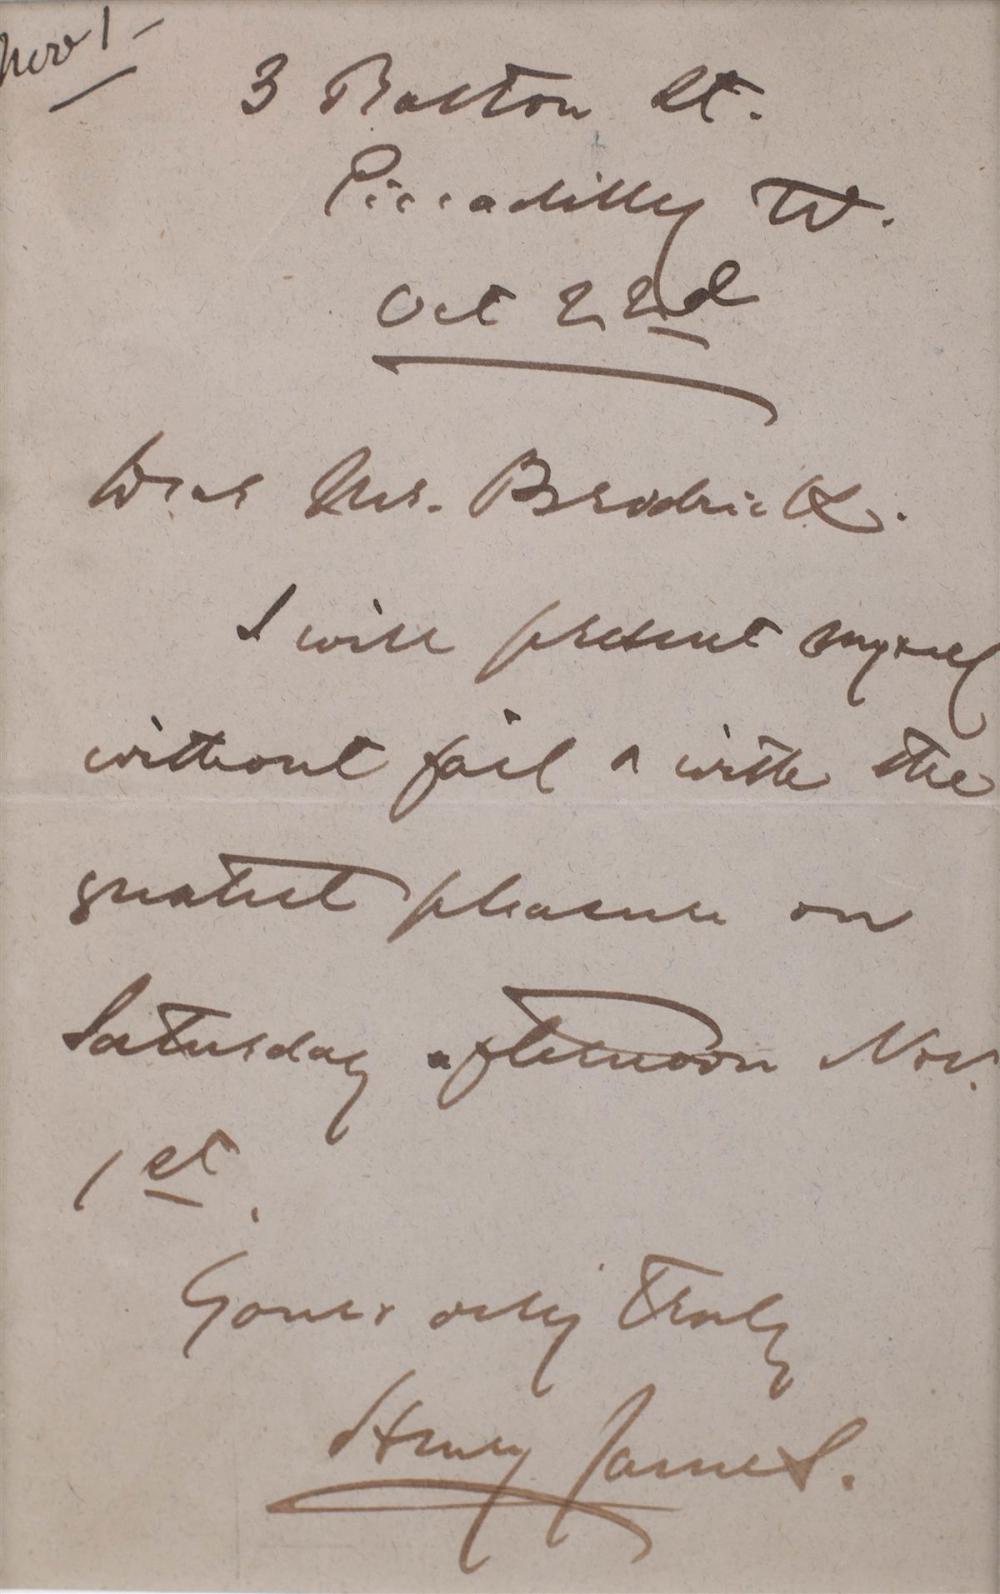 Nov 1
3 Bolton St.
Piccadilly W.
Oct 22d
Dear Mrs. Brodrick.
I will present myself
without fail & with the
greatest pleasure on
Saturday afternoon Nov.
1st.
Yours very truly
Henry James.